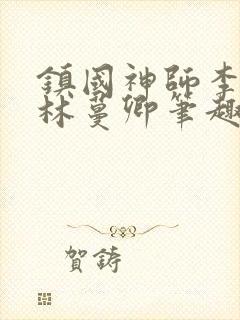 鎮國神師李
林蔓卿筆趣
賀鋳